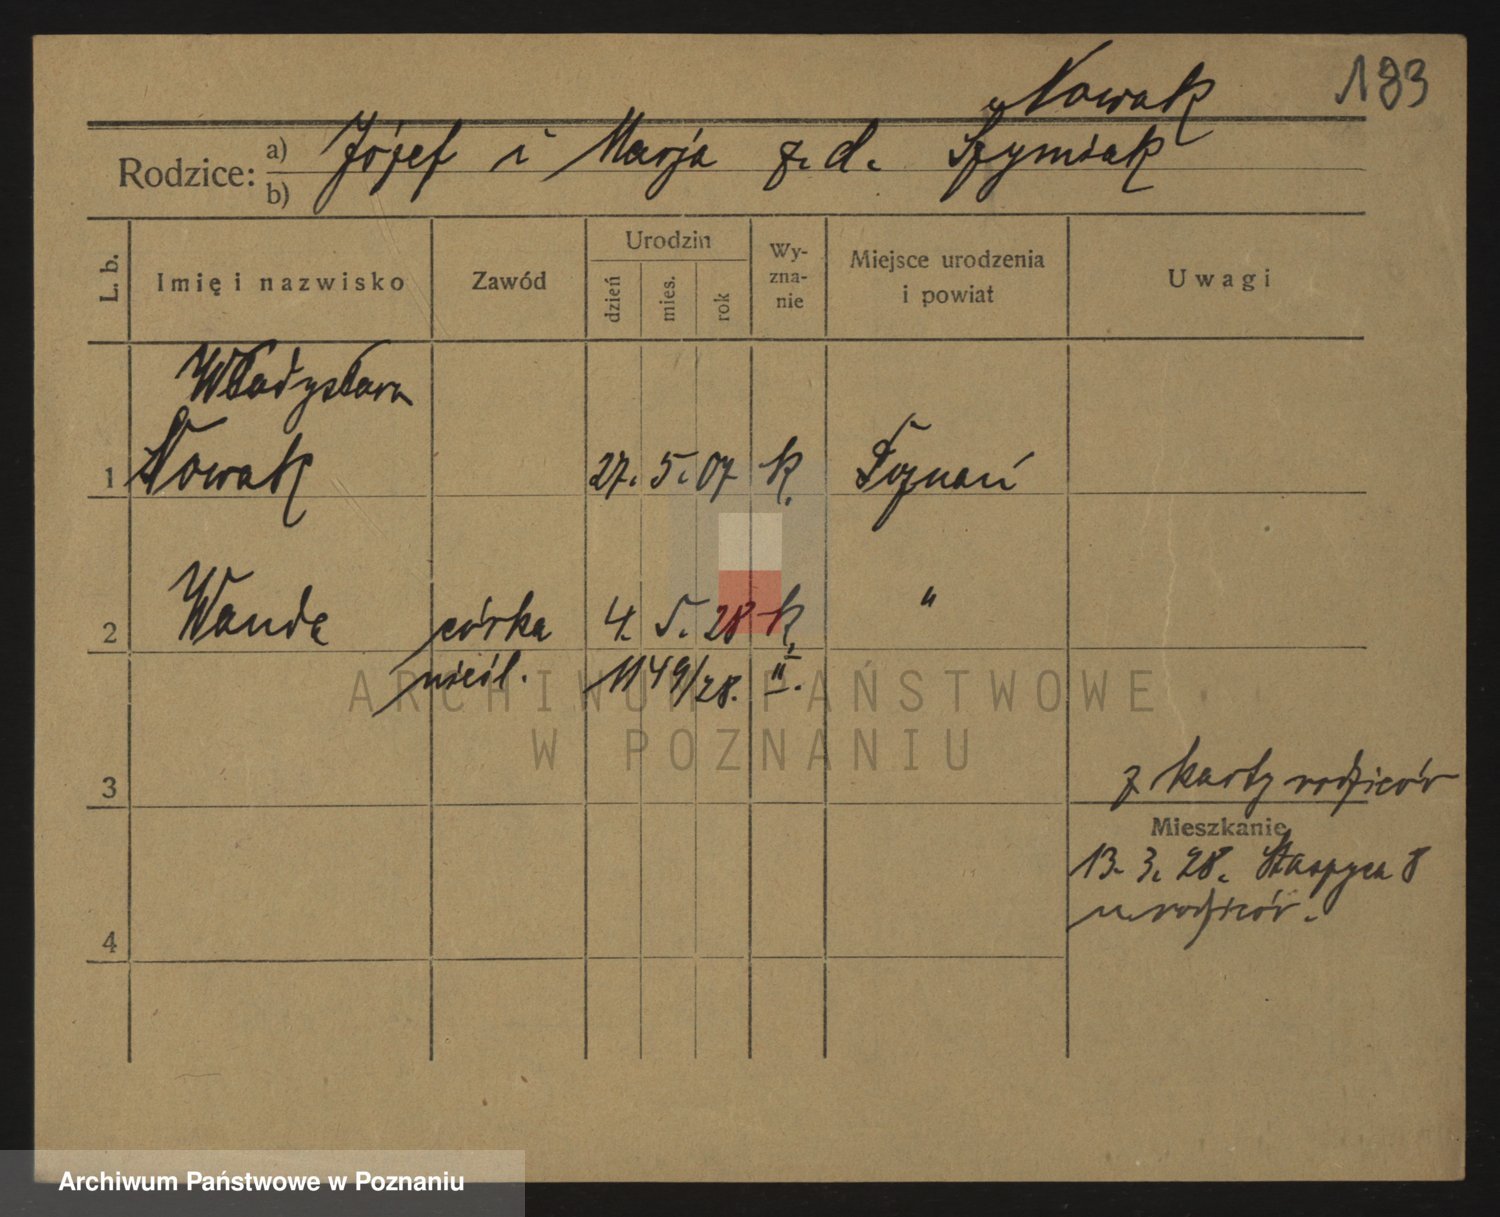 193
Nowak
Rodzice: a) b) Józef i Marja z. d. Szymiak
L. b. Imię i nazwisko Zawód Urodzin dzień mies. rok Wy-zna-nie Miejsce urodzenia i powiat Uwagi
Władysława
1 Nowak 27. 5. 07 k. Poznań
2 Wanda córka 4. 5. 28 k. "
nieśl. 1149/28. II.
ARCHIWUM PAŃSTWOWE
W POZNANIU
3 z karty rodziców
Mieszkanie
13. 3. 28. 8
u rodziców.
4
Archiwum Państwowe w Poznaniu